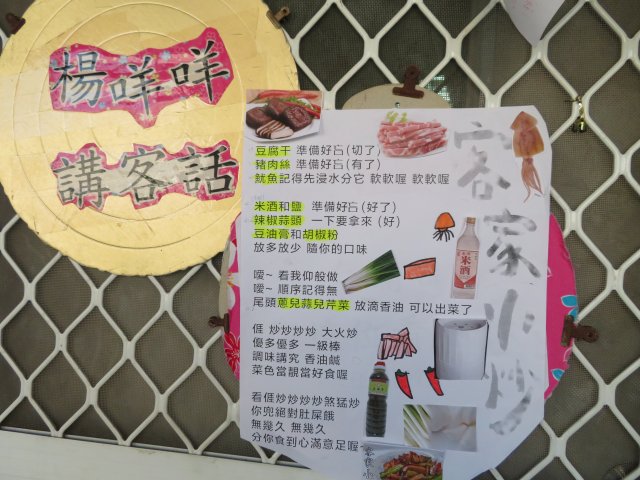 楊咩咩
講客話
客家小炒
豆腐干 準備好吂(切了)
豬肉絲 準備好吂(有了)
魷魚記得先浸水分它 軟軟喔 軟軟喔
米酒和鹽 準備好吂(好了)
辣椒蒜頭 一下要拿來(好)
豆油膏和胡椒粉
放多放少 隨你的口味
噯~ 看我仰般做
噯~ 順序記得無
尾頭蔥兒蒜兒芹菜 放滴香油 可以出菜了
𠊎 炒炒炒炒 大火炒
優多優多 一級棒
調味講究 香油鹹
菜色當靚當好食喔
看𠊎炒炒炒炒煞猛炒
你兜絕對肚屎餓
無幾久 無幾久
分你食到心滿意足喔~
米酒